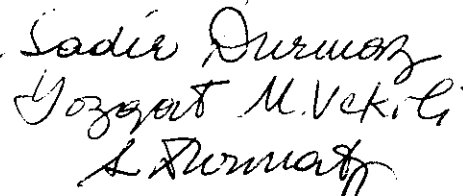 Sadir Durmaz
Yozgat M.Vekili
S. Durmaz